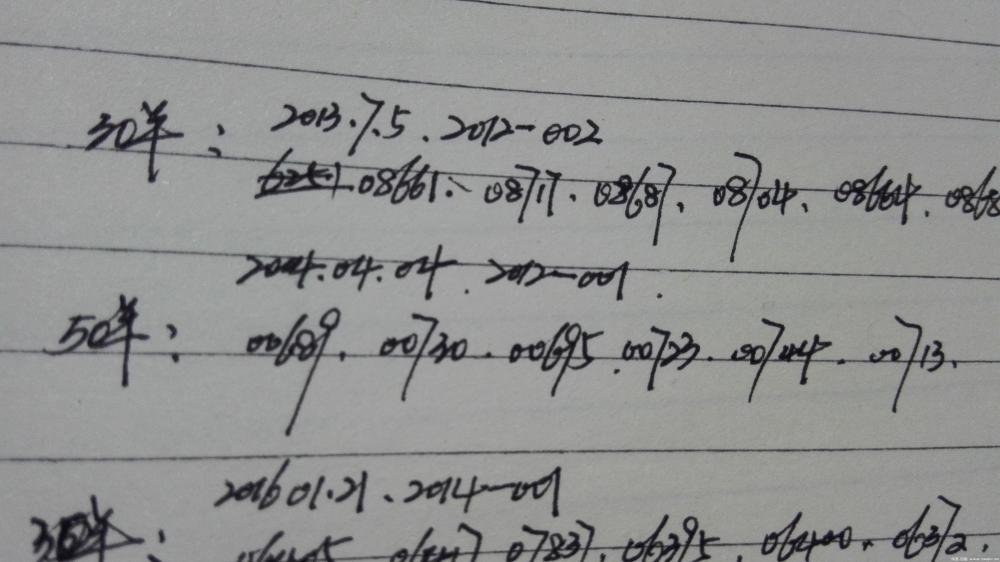 30年: 2013.7.5. 2012-002
08661、08717. 08687. 08704. 08664. 0868
2014.04.04. 2012-001.
50年: 00689. 00730. 00695. 00723. 00744. 00713.
2016 01.21、2014-001
07837. 06395. 06400. 06372.